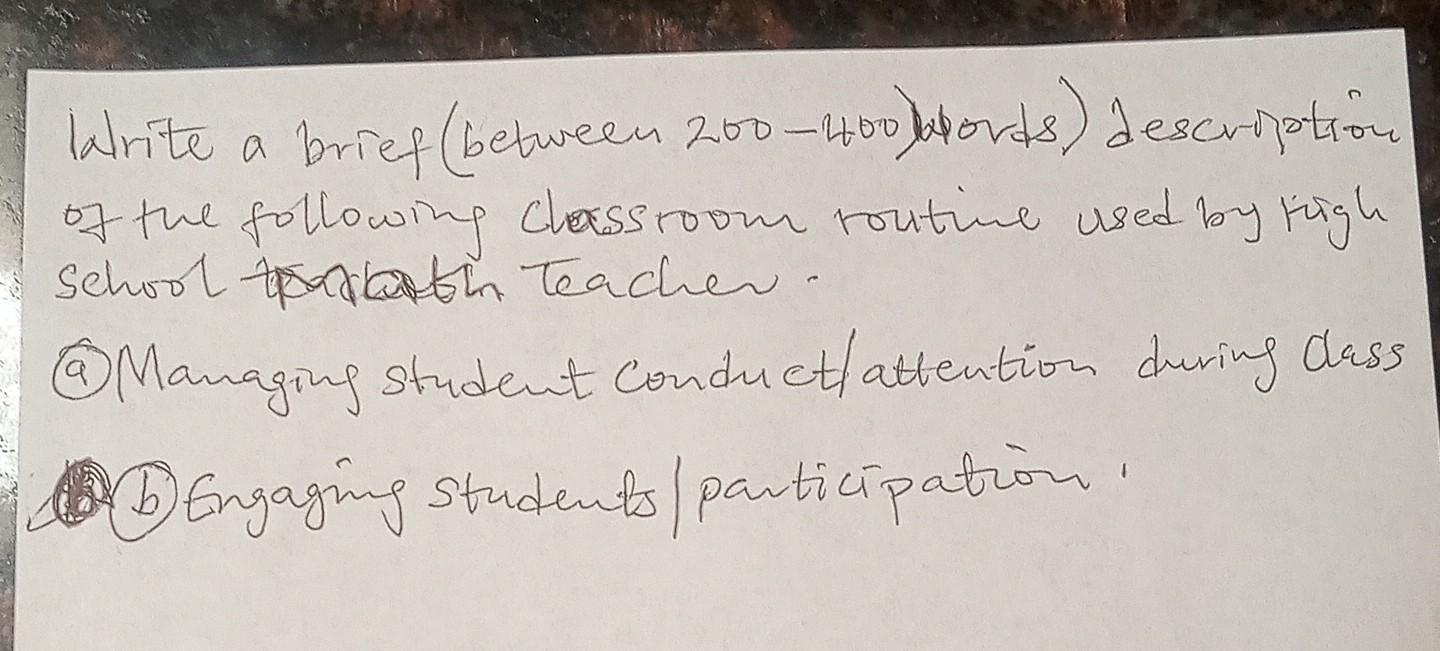 Write a brief (between 200-400) words) description
of the following classroom routine used by High
school Teacher.
(a) Managing student conduct/attention during class
(b) Engaging students/participation.